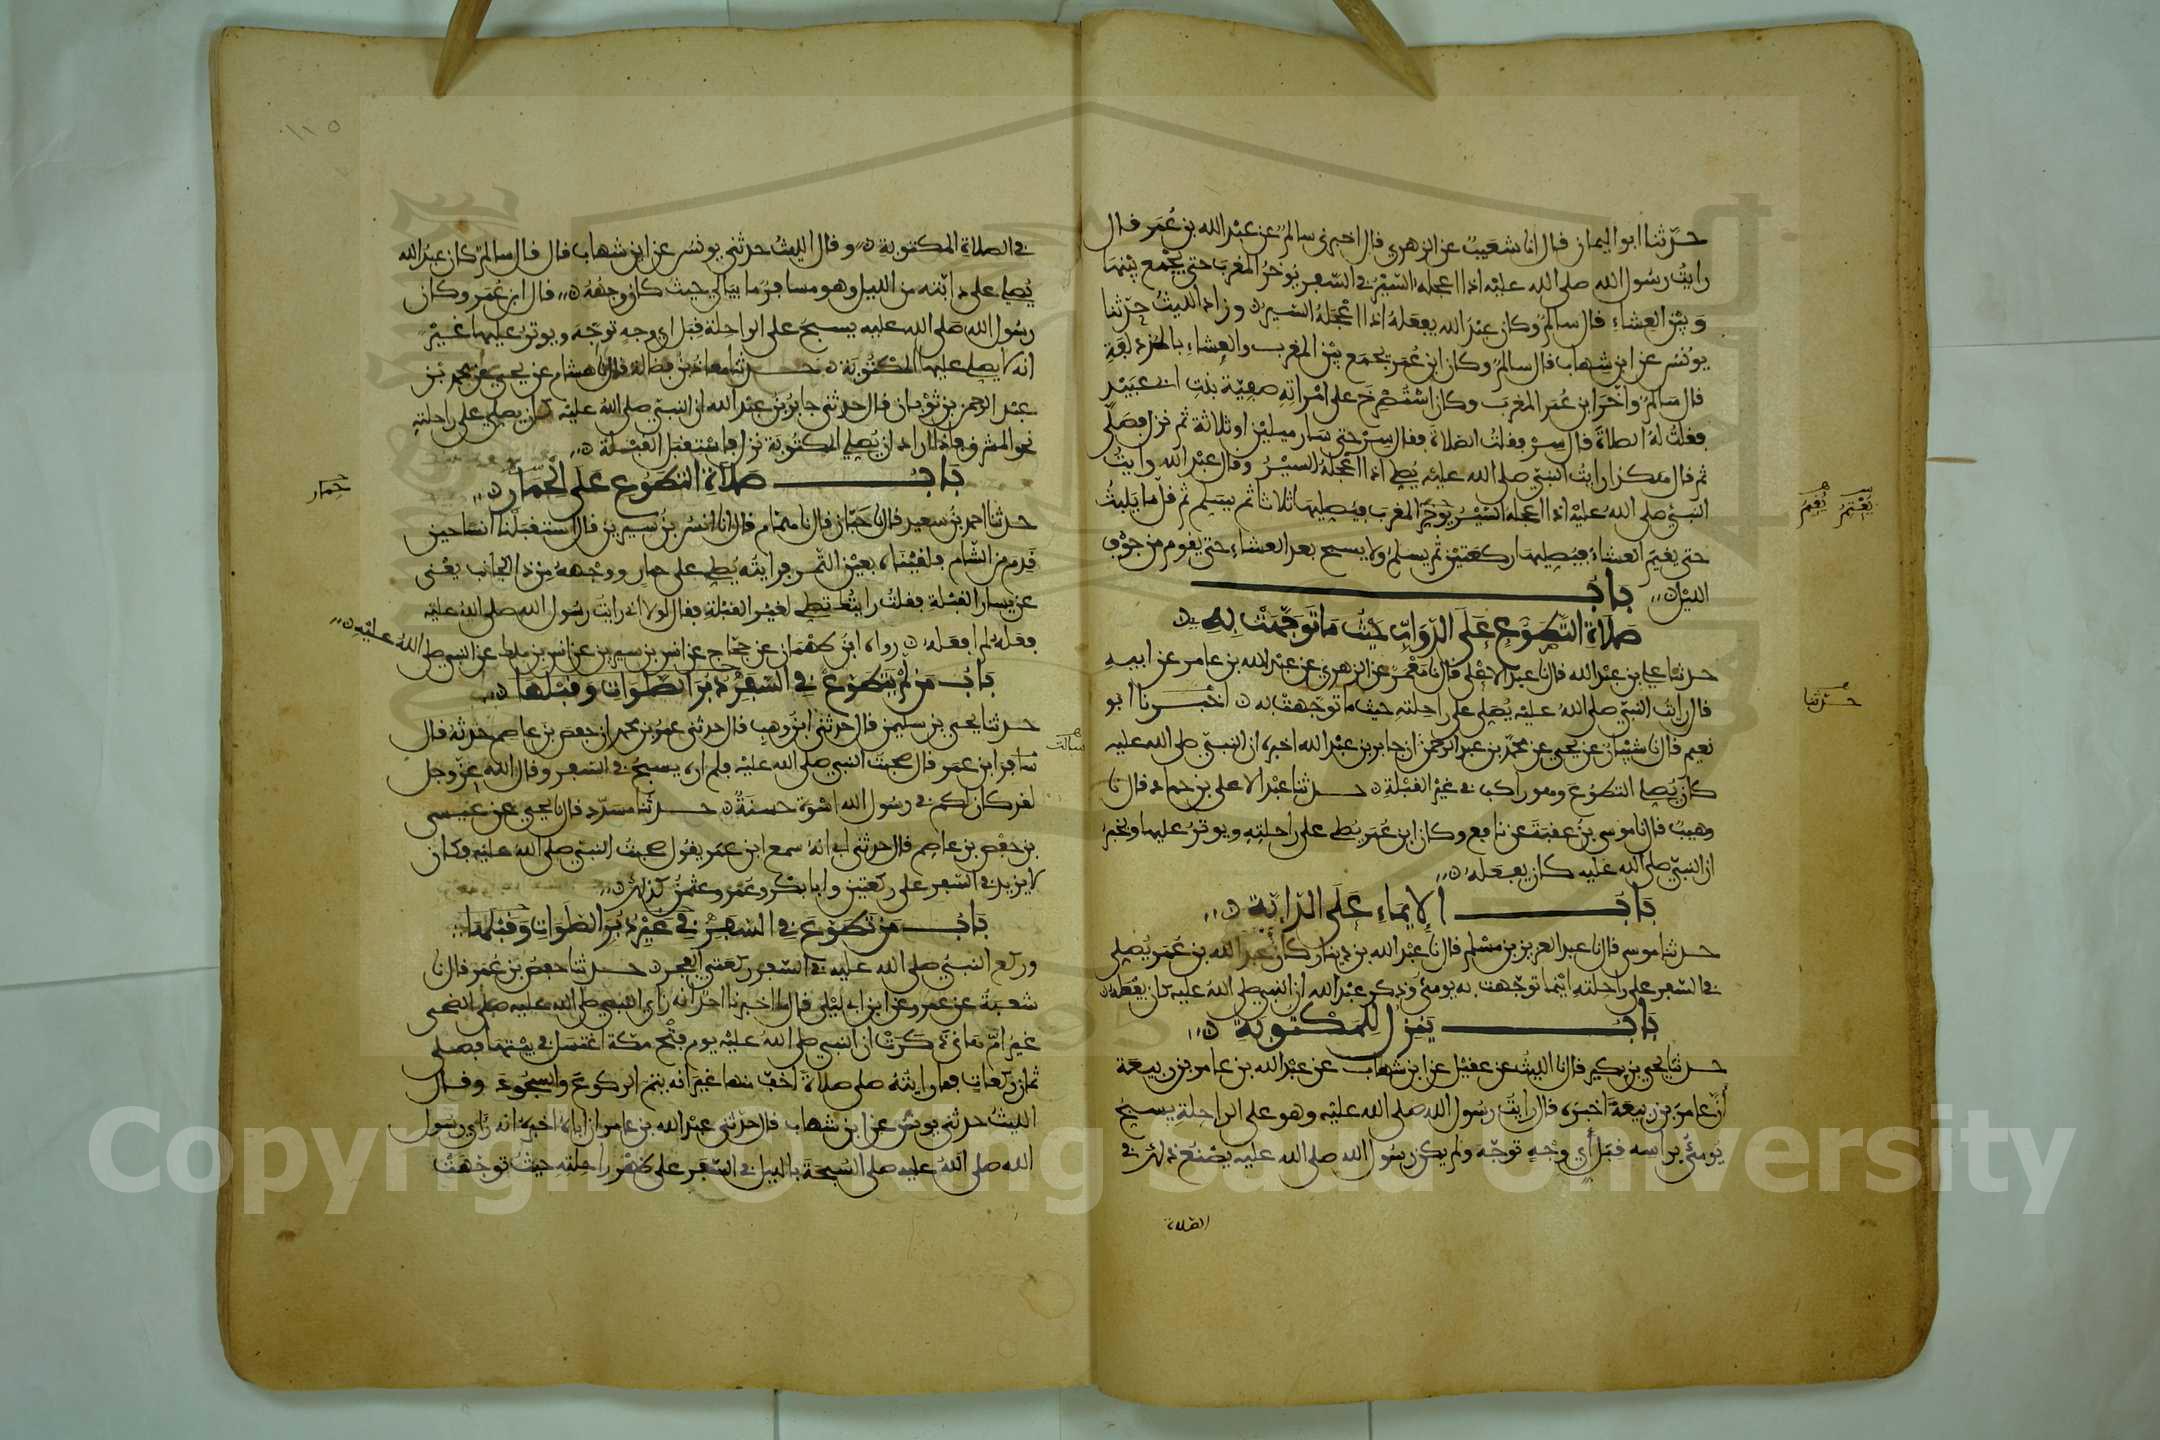 حدثنا ابو اليمان قال انا شعيب عن الزهري قال اخبرني سالم عن عبد الله بن عمر قال
رايت رسول الله صلى الله عليه اذا اعجله السير في السفر يوخر المغرب حتى يجمع بينها
وبين العشاء قال سالم وكان عبد الله يفعله اذا اعجله السير وزاد الليث حدثنا
يونس عن ابن شهاب قال سالم وكان ابن عمر يجمع بين المغرب والعشاء بالمزدلفة
قال سالم واخر ابن عمر المغرب وكان استصرخ على امراته صفية بنت ابي عبيد
فقلت له الصلاة قال سر فقلت الصلاة فقال سر حتى سار ميلين او ثلاثة ثم نزل فصلى
ثم قال هكذا رايت النبي صلى الله عليه يصلي اذا اعجله السير وقال عبد الله رايت
النبي صلى الله عليه اذا اعجله السير يوخر المغرب فيصليها ثلاثا ثم يسلم ثم قل ما يلبث
حتى يقيم العشاء فيصليها ركعتين ثم يسلم ولا يسبح بعد العشاء حتى يقوم من جوف
الليل باب
صلاة التطوع على الدواب حيث ما توجهت به
حدثنا علي بن عبد الله قال نا عبد الاعلى قال نا معمر عن الزهري عن عبد الله بن عامر عن ابيه
قال رايت النبي صلى الله عليه يصلي على راحلته حيث ما توجهت به اخبرنا ابو
نعيم قال نا شيبان عن يحيى عن محمد بن عبد الرحمن ان جابر بن عبد الله اخبره ان النبي صلى الله عليه
كان يصلي التطوع وهو راكب في غير القبلة حدثنا عبد الاعلى بن حماد قال نا
وهيب قال نا موسى بن عقبة عن نافع وكان ابن عمر يصلي على راحلته ويوتر عليها ويخبر
ان النبي صلى الله عليه كان يفعله
باب الايماء على الدابة
حدثنا موسى قال نا عبد العزيز بن مسلم قال نا عبد الله بن دينار كان عبد الله بن عمر يصلي
في السفر على راحلته اينما توجهت به يومئ وذكر عبد الله ان النبي صلى الله عليه كان يفعله
باب ينزل للمكتوبة
حدثنا يحيى بن بكير قال نا الليث عن عقيل عن ابن شهاب عن عبد الله بن عامر بن ربيعة
ان عامر بن ربيعة اخبره قال رايت رسول الله صلى الله عليه وهو على الراحلة يسبح
يومئ براسه قبل اي وجه توجه ولم يكن رسول الله صلى الله عليه يصنع ذلك في
الصلاة
يعتم يقيم
حدثنا
في الصلاة المكتوبة وقال الليث حدثني يونس عن ابن شهاب قال قال سالم كان عبد الله
يصلي على دابته من الليل وهو مسافر ما يبالي حيث كان وجهه قال ابن عمر وكان
رسول الله صلى الله عليه يسبح على الراحلة قبل اي وجه توجه ويوتر عليها غير
انه لا يصلي عليها المكتوبة حدثنا معاذ بن فضالة قال نا هشام عن يحيى عن محمد بن
عبد الرحمن بن ثوبان قال حدثني جابر بن عبد الله ان النبي صلى الله عليه كان يصلي على راحلته
نحو المشرق فاذا اراد ان يصلي المكتوبة نزل فاستقبل القبلة
باب صلاة التطوع على الحمار
حدثنا احمد بن سعيد قال نا حبان قال نا همام قال انا انس بن سيرين قال استقبلنا انسا حين
قدم من الشام فلقيناه بعين التمر فرايته يصلي على حمار ووجهه من ذا الجانب يعني
عن يسار القبلة فقلت رايتك تصلي لغير القبلة فقال لولا اني رايت رسول الله صلى الله عليه
فعله لم افعله رواه ابن طهمان عن حجاج عن انس بن سيرين عن انس بن ملك عن النبي صلى الله عليه
باب من لم يتطوع في السفر دبر الصلوات وقبلها
حدثنا يحيى بن سليمن قال حدثني ابن وهب قال حدثني عمر بن محمد ان حفص بن عاصم حدثه قال
سافر ابن عمر قال صحبت النبي صلى الله عليه فلم اره يسبح في السفر وقال الله عز وجل
لقد كان لكم في رسول الله اسوة حسنة حدثنا مسدد قال نا يحيى عن عيسى
بن حفص بن عاصم قال حدثني ابي انه سمع ابن عمر يقول صحبت النبي صلى الله عليه وكان
لا يزيد في السفر على ركعتين وابا بكر وعمر وعثمن كذلك
باب من تطوع في السفر في غير دبر الصلوات وقبلها
وركع النبي صلى الله عليه في السفر ركعتي الفجر حدثنا حفص بن عمر قال نا
شعبة عن عمرو عن ابن ابي ليلى قال ما اخبرنا احد انه راي النبي صلى الله عليه صلى الضحى
غير ام هانئ ذكرت ان النبي صلى الله عليه يوم فتح مكة اغتسل في بيتها فصلى
ثمان ركعات فما رايته صلى صلاة اخف منها غير انه يتم الركوع والسجود وقال
الليث حدثني يونس عن ابن شهاب قال حدثني عبد الله بن عامر ان اباه اخبره انه راي رسول
الله صلى الله عليه صلى السبحة بالليل في السفر على ظهر راحلته حيث توجهت
حمار
سالت
١١٥